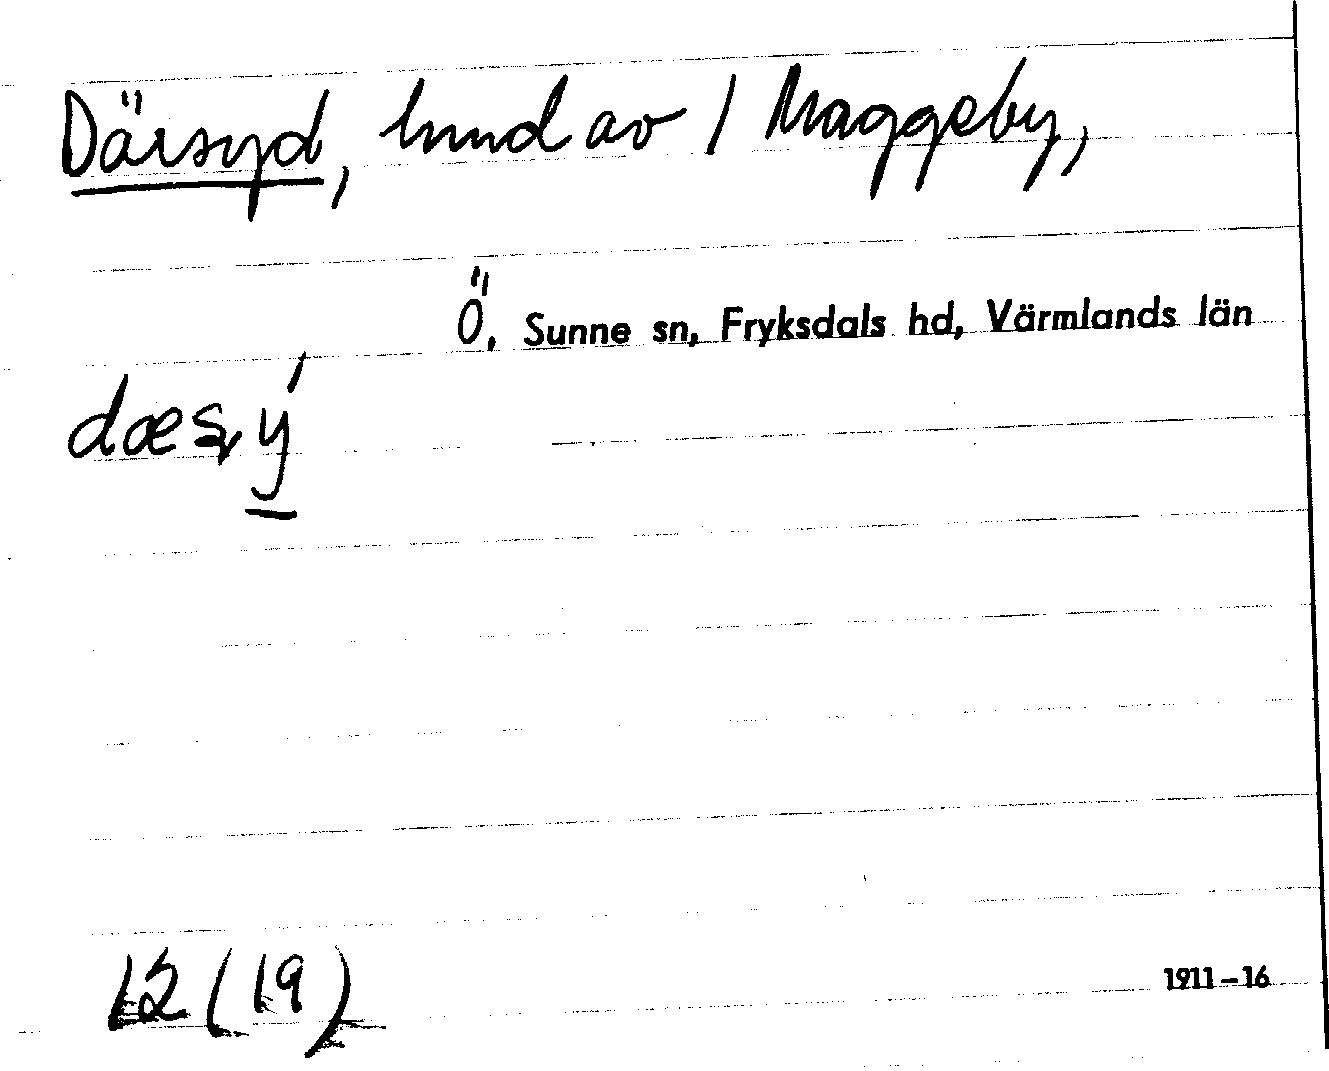 Därsyd, hmd av 1 Maggeby,
Ö, Sunne sn, Fryksdals hd, Värmlands län
dæsý
12 (19)
1911-16